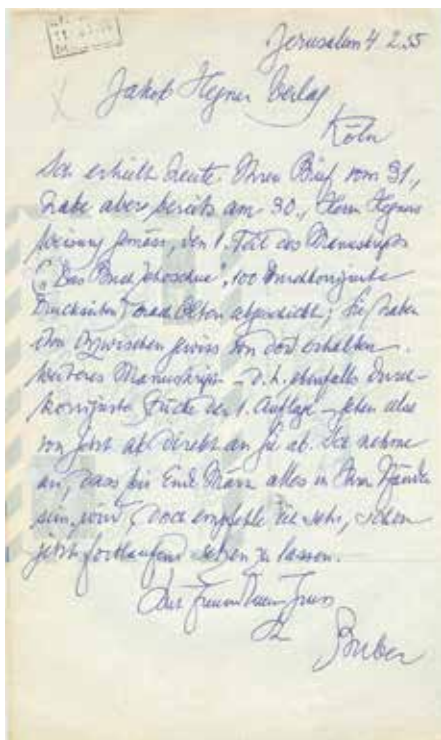 Jerusalem 4 2.55
Jakob Hegner Verlag
Köln
Ich erhielt heute Ihren Brief vom 31.,
habe aber bereits am 30., Herrn Hegners
Weisung gemäss, den 1. Teil des Manuskripts
("Das Buch Jehoschua", 100 durchkorrigierte
Druckseiten) nach Olten abgeschickt; Sie haben
ihn inzwischen gewiss von dort erhalten.
Weiteres Manuskript – d.h. ebenfalls durch-
korrigierte Stücke der 1. Auflage – gehen also
von jetzt ab direkt an Sie ab. Ich nehme
an, dass bis Ende März alles in Ihren Händen
sein wird, doch empfehle ich sehr, schon
jetzt fortlaufend setzen zu lassen.
Mit freundlichem Gruss
Buber